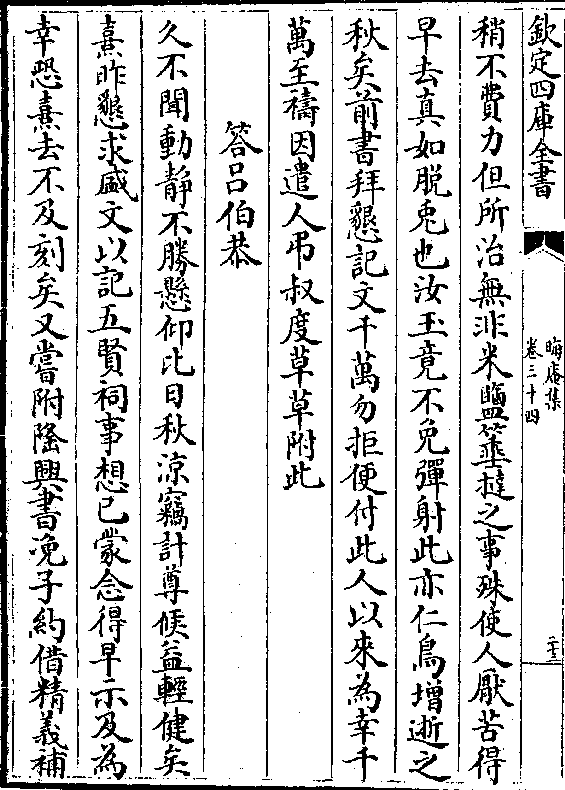 欽定四庫全書
晦庵集
卷三十四
二十三
稍不費力但所治無非米鹽箠撻之事殊使人厭苦得
早去真如脱兎也汝玉竟不免彈射此亦仁鳥增逝之
秋矣前書拜懇記文千萬勿拒便付此人以來為幸千
萬至禱因遣人弔叔度草草附此
答吕伯恭
久不聞動靜不勝懸仰比日秋涼竊計尊候益輕健矣
熹昨懇求盛文以記五賢祠事想已蒙念得早示及為
幸恐熹去不及刻矣又嘗附隆興書浼子約借精義補